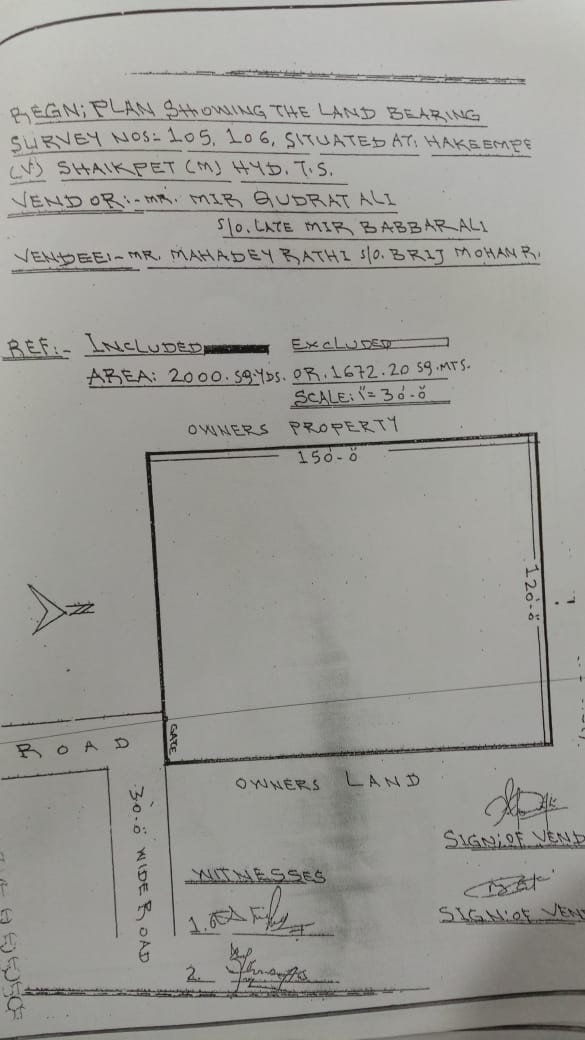 REGN: PLAN SHOWING THE LAND BEARING
SURVEY NOS:- 105, 106, SITUATED AT: HAKEEMPE
(V) SHAIKPET (M) HYD. T.S.
VENDOR:- MR. MIR QUDRAT ALI
S/O. LATE MIR BABBAR ALI
VENDEE:- MR. MAHADEV RATHI S/O. BRIJ MOHAN R.
REF:- INCLUDED EXCLUDED
AREA: 2000. SQ.YDS. OR. 1672.20 SQ.MTS.
SCALE: 1"= 30'-0"
OWNERS PROPERTY
150'-0"
120'-0"
N
GATE
ROAD
OWNERS LAND
30'-0" WIDE ROAD
SIGN: OF VEND
WITNESSES
1.
SIGN: OF VEN
2.